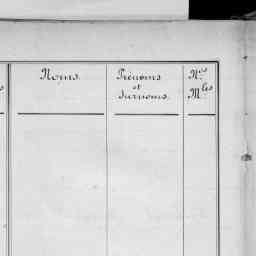 Noms.
Prénoms
et
surnoms.
Nos
Mles
s